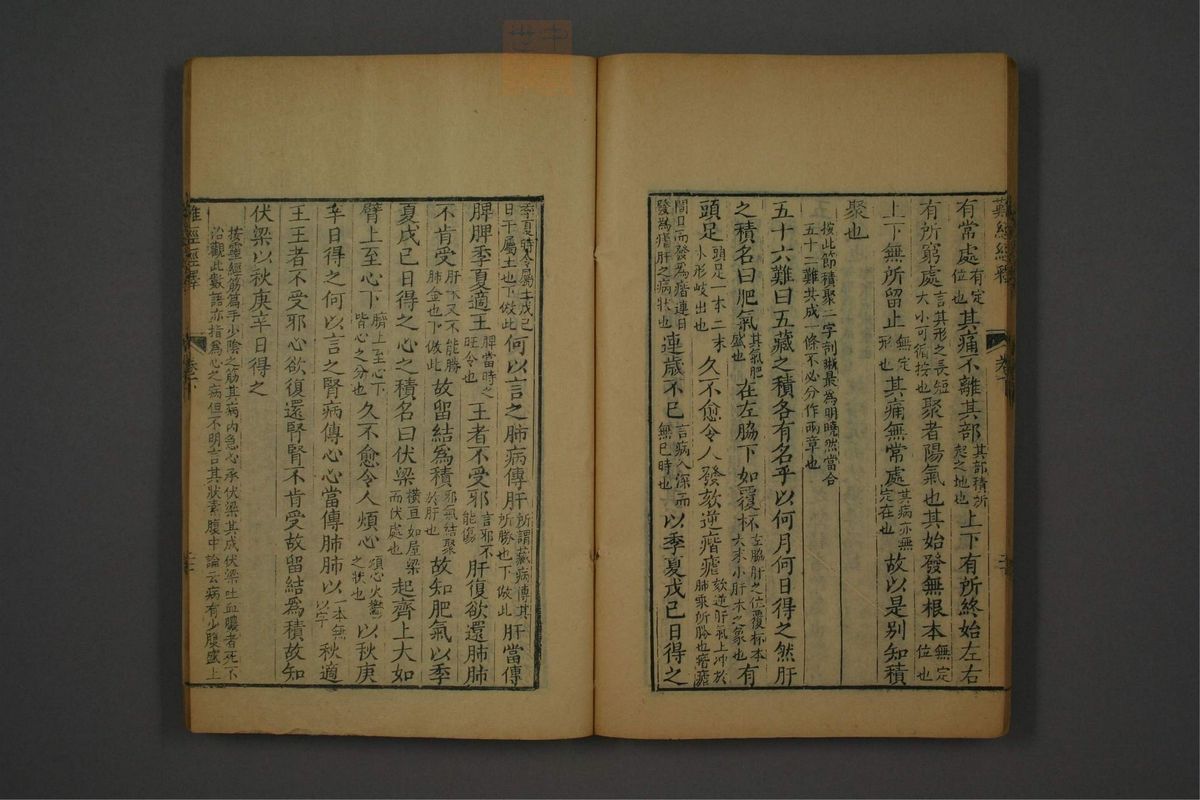 難經經釋
卷下
有常處有定位也其痛不離其部其部積所起之地也上下有所終始左右
有所窮處言其形之長短大小可循按也聚者陽氣也其始發無根本無定位也
上下無所留止無定形也其痛無常處其病亦無定在也故以是別知積
聚也
按此節積聚二字剖瀐最為明曉然當合五十二難共成一條不必分作兩章也
五十六難曰五藏之積各有名乎以何月何日得之然肝
之積名曰肥氣其氣肥盛也在左脇下如覆杯左脇肝之位覆杯本大末小肝木之象也有
頭足頭足一本二末小形岐出也久不愈令人發欬逆瘖瘧欬逆肝氣上冲於肺乘所勝也瘖瘧
間日而發為瘖連日發為瘧肝之病狀也連歲不已言病入深而無已時也以季夏戊已日得之
季夏時令屬土戊已日干屬土也下倣此何以言之肺病傳肝所謂藏病傳其所勝也下倣此肝當傳
脾脾季夏適王脾當時之旺令也王者不受邪言邪不能傷肝復欲還肺肺
不肯受肝木又不能勝肺金也下倣此故留結爲積邪氣結聚於肝也故知肥氣以季
夏戊已日得之心之積名曰伏梁橫亘如屋梁而伏處也起齊上大如
臂上至心下臍上至心下皆心之分也久不愈令人煩心煩心火鬱之狀也以秋庚
辛日得之何以言之腎病傳心心當傳肺肺以一本無以字秋適
王王者不受邪心欲復還腎腎不肯受故留結爲積故知
伏梁以秋庚辛日得之
按靈經筋篇手少陰之筋其病內急心承伏梁其成伏梁吐血膿者死不
治觀此數語亦指爲心之病但不明言其狀素腹中論云病有少腹盛上
難經經釋
卷下